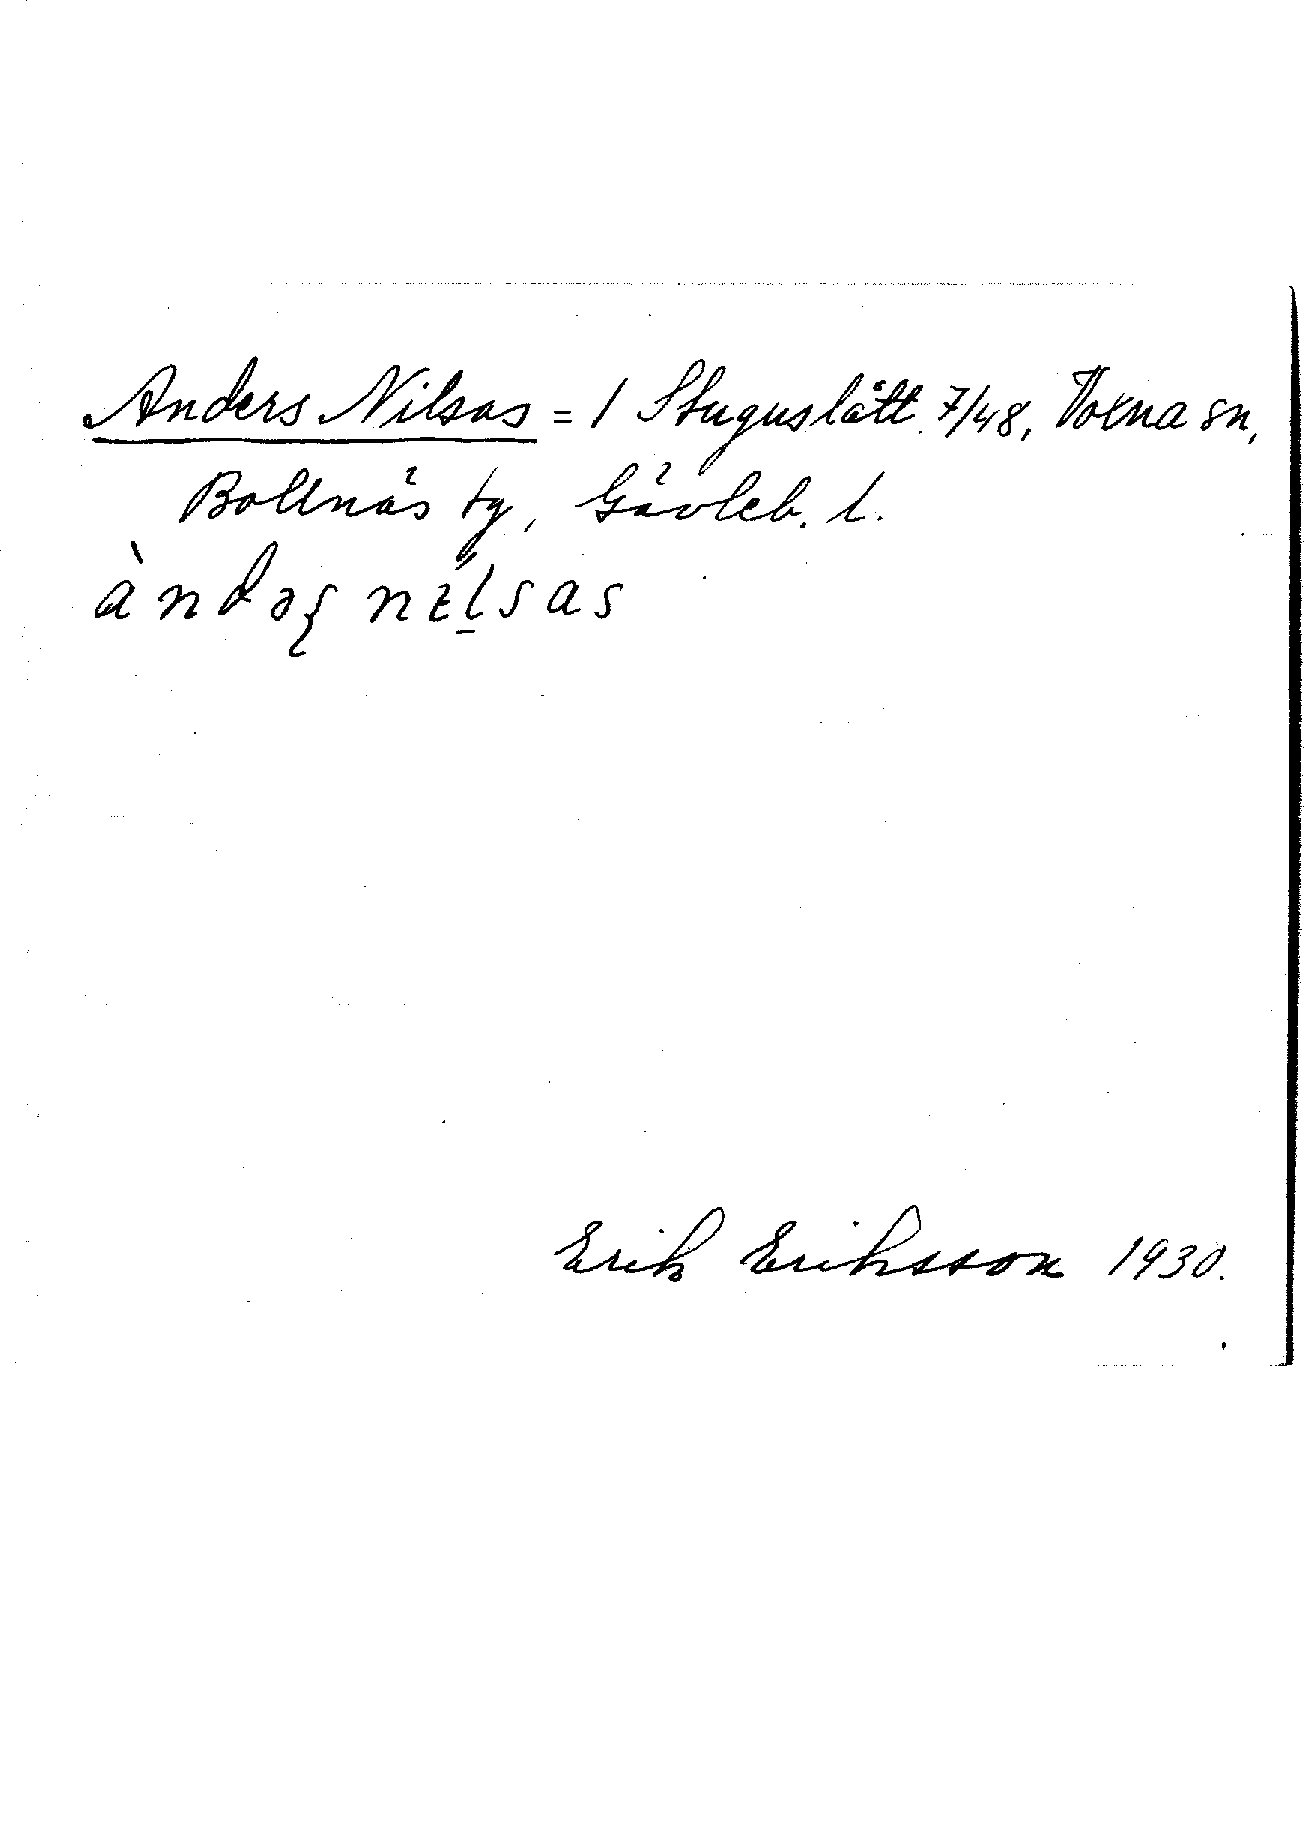 Anders Nilsas = 1 Stuguslått 7/48, Voxna sn,
Bollnäs tg, Gävleb. l.
àndəʂ nɪ́lsas
Erik Eriksson 1930.